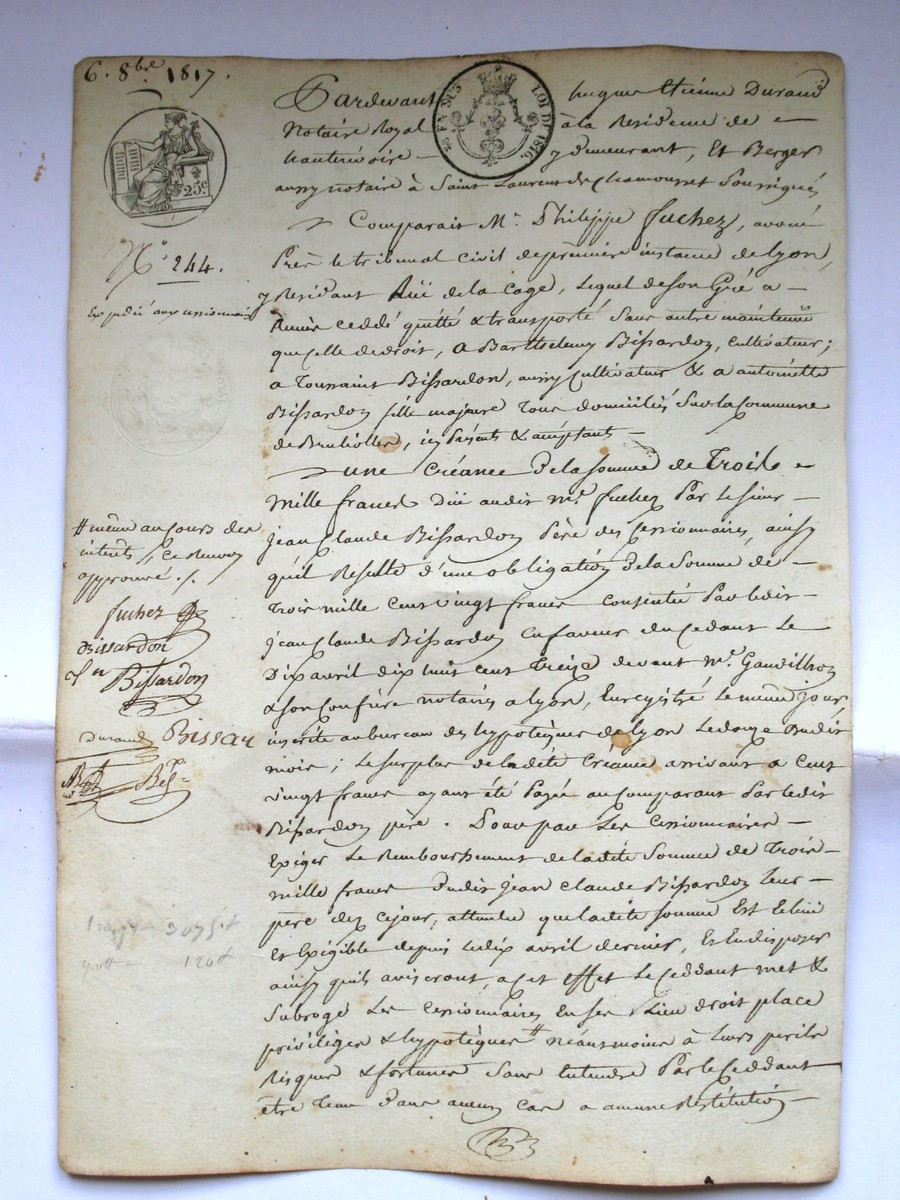 6. 8bre 1817.
25c
EN SUS LOI DE 1816.
No 244.
Expédié aux
Pardevant hugues Etienne Durand
Notaire Royal à la Residence de
y demeurant, Et Berger
aussy notaire à Saint Laurent de Chamousset Soussignés
Comparait Mr. Philippe fuchez, avoué
Près le tribunal Civil de première instance de Lyon,
y Résidant Rüe de la Cage, lequel de son Gré a
Remis ceddé quitté & transporté Sans autre maintenüe
que celle de droit, a Barthelemy Bissardon, cultivateur;
a Toussaint Bissardon, aussy Cultivateur & a antoinette
Bissardon fille majure Tous domiciliés Sur la Commune
de Brullolles, icy Présents & acceptants
une Créance de la somme de Trois
mille francs düe audit mr. fuchez Par le sieur
jean Claude Bissardon Père des Cessionnaires, ainsy
qu'il Resulte d'une obligation de la Somme de
Trois mille cent vingt francs consentie Par ledit
jean Claude Bissardon En faveur du Cedant Le
Dix avril dix huit cent Treize devant mr.
& son Confrère notaires a lyon, Enregistré le meme jour,
inscrite au bureau des hypotèques de lyon Le douze Dudit
mois; Le surplus de ladite Créance arrivant a Cent
vingt francs ayant été Payé au Comparant Par ledit
Bissardon père. Les Cessionnaires
Exiger Le Remboursement de ladite Somme de Trois
mille francs Dudit jean Claude Bissardon leur
père dez cejour, attendu que ladite somme Est
Et Exigible depuis le dix avril dernier, Et En disposer
ainsy quils aviseront, a cet effet Le Ceddant met &
Subroge Les Cessionnaires En ses Lieu droit place
privilèges & hypotèques # néansmoins à leurs perils
Risques & fortunes Sans Entendre Par le Ceddant
être Tenu dans aucun Cas a aucune Restitution
# même au cours des
interêts, Ce Renvoy
approuvé ./.
fuchez
Bissardon
Bissardon
Durand Bissar